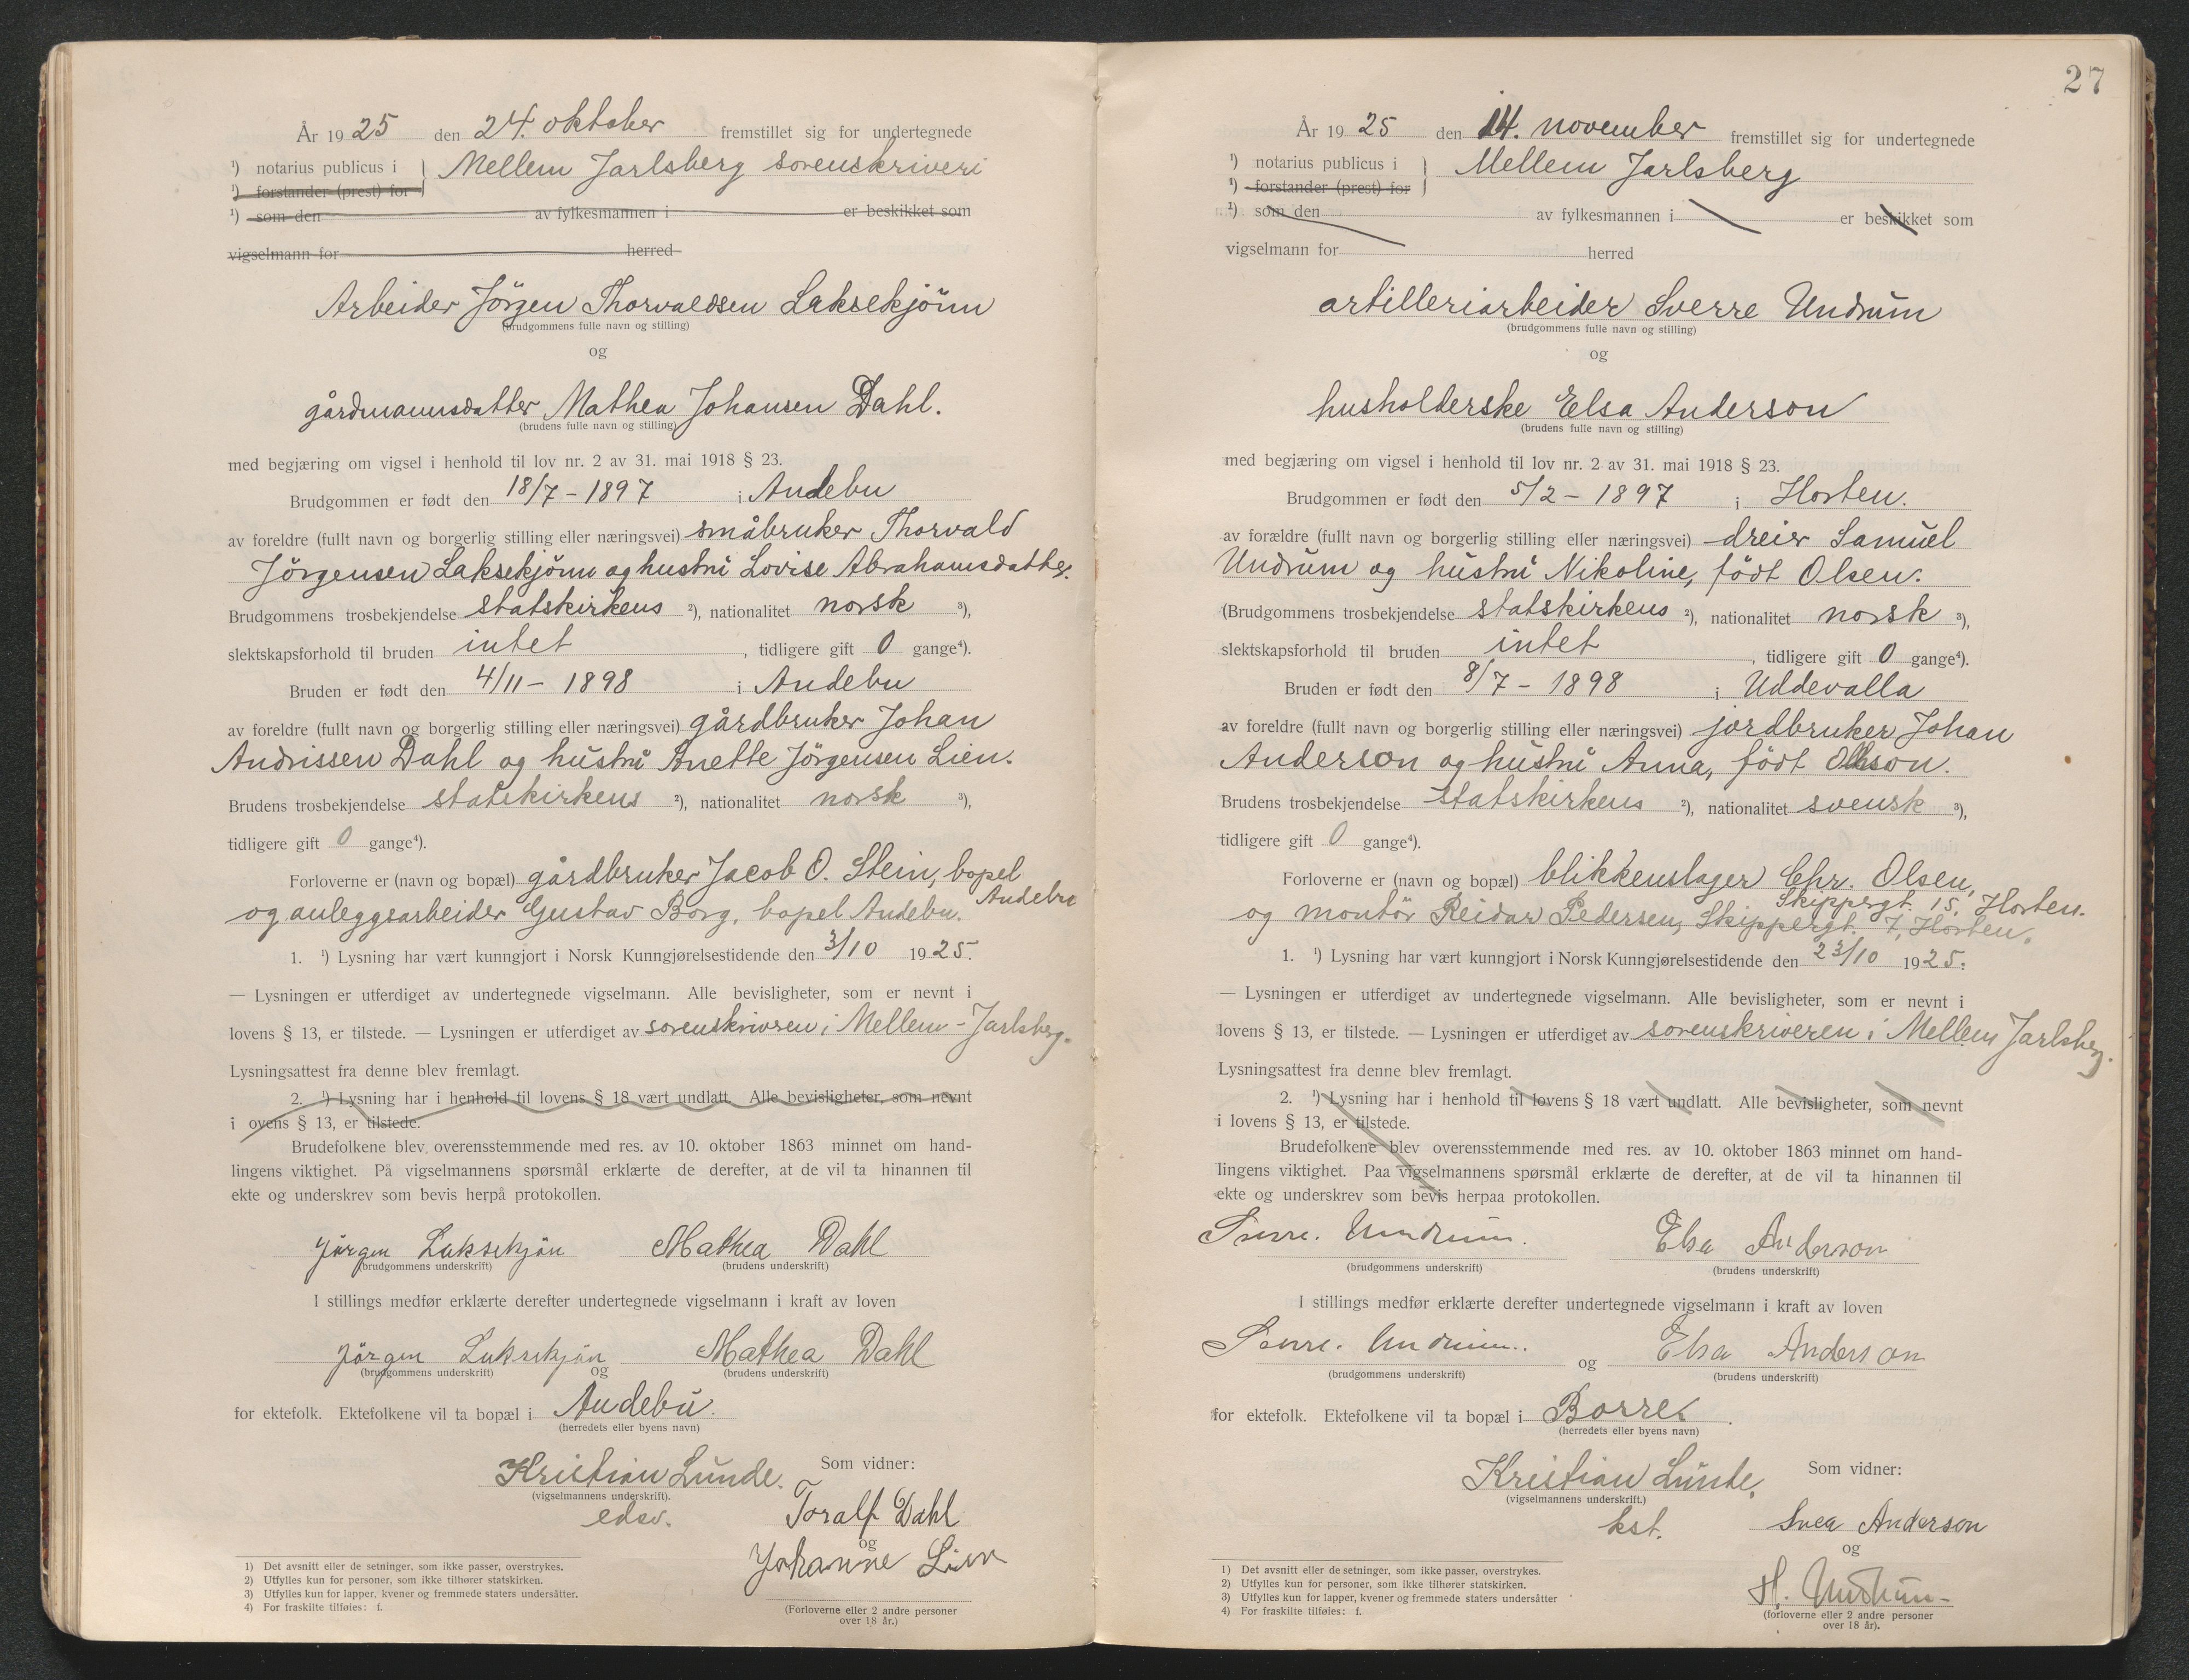 År 1925 den 24. oktober fremstillet sig for undertegnede
¹) notarius publicus i } Mellem Jarlsberg sorenskriveri
¹) forstander (prest) for
¹) som den av fylkesmannen i er beskikket som
vigselmann for herred
Arbeider Jörgen Thorvaldsen Laksekjönn
(brudgommens fulle navn og stilling)
og
gårdmannsdatter Mathea Johansen Dahl.
(brudens fulle navn og stilling)
med begjæring om vigsel i henhold til lov nr. 2 av 31. mai 1918 § 23.
Brudgommen er født den 18/7 - 1897 i Andebu
av foreldre (fullt navn og borgerlig stilling eller næringsvei) småbruker Thorvald
Jörgensen Laksekjönn og hustru Lovise Abrahamsdatter.
Brudgommens trosbekjendelse statskirkens ²), nationalitet norsk ³),
slektskapsforhold til bruden intet , tidligere gift 0 gange⁴).
Bruden er født den 4/11 - 1898 i Andebu
av foreldre (fullt navn og borgerlig stilling eller næringsvei) gårdbruker Johan
Andrissen Dahl og hustru Anette Jörgensen Lien.
Brudens trosbekjendelse statskirkens ²), nationalitet norsk ³),
tidligere gift 0 gange⁴).
Forloverne er (navn og bopæl) gårdbruker Jacob O. Stein, bopel Andebu
og anleggsarbeider Gustav Borg, bopel Andebu.
1. ¹) Lysning har vært kunngjort i Norsk Kunngjørelsestidende den 3/10 1925.
— Lysningen er utferdiget av undertegnede vigselmann. Alle bevisligheter, som er nevnt i
lovens § 13, er tilstede. — Lysningen er utferdiget av sorenskriveren i Mellem-Jarlsberg.
Lysningsattest fra denne blev fremlagt.
2. ¹) Lysning har i henhold til lovens § 18 vært undlatt. Alle bevisligheter, som nevnt
i ovens § 13, er tilstede.
Brudefolkene blev overensstemmende med res. av 10. oktober 1863 minnet om hand-
lingens viktighet. På vigselmannens spørsmål erklærte de derefter, at de vil ta hinannen til
ekte og underskrev som bevis herpå protokollen.
Jörgen Laksekjön Mathea Dahl
(brudgommens underskrift) (brudens underskrift)
I stillings medfør erklærte derefter undertegnede vigselmann i kraft av loven
Jörgen Laksekjön og Mathea Dahl
(brudgommens underskrift) (brudens underskrift)
for ektefolk. Ektefolkene vil ta bopæl i Andebu.
(herredets eller byens navn)
Kristian Lunde. Som vidner:
(vigselmannens underskrift).
edsv. Toralf Dahl
og
Johanne Lien
(Forloverne eller 2 andre personer
over 18 år.)
1) Det avsnitt eller de setninger, som ikke passer, overstrykes.
2) Utfylles kun for personer, som ikke tilhører statskirken.
3) Utfylles kun for lapper, kvener og fremmede staters undersåtter.
4) For fraskilte tilføies: f.
27
År 1925 den 14. november fremstillet sig for undertegnede
¹) notarius publicus i } Mellem Jarlsberg
¹) forstander (prest) for
¹) som den av fylkesmannen i er beskikket som
vigselmann for herred
artilleriarbeider Sverre Undrum
(brudgommens fulle navn og stilling)
og
husholderske Elsa Anderson
(brudens fulle navn og stilling)
med begjæring om vigsel i henhold til lov nr. 2 av 31. mai 1918 § 23.
Brudgommen er født den 5/2 - 1897 i Horten.
av forældre (fullt navn og borgerlig stilling eller næringsvei) dreier Samuel
Undrum og hustru Nikoline, födt Olsen.
(Brudgommens trosbekjendelse statskirkens ²), nationalitet norsk ³),
slektskapsforhold til bruden intet , tidligere gift 0 gange⁴).
Bruden er født den 8/7 - 1898 i Uddevalla
av foreldre (fullt navn og borgerlig stilling eller næringsvei) jordbruker Johan
Anderson og hustru Anna, födt Olsson.
Brudens trosbekjendelse statskirkens ²), nationalitet svensk ³),
tidligere gift 0 gange⁴).
Forloverne er (navn og bopæl) blikkenslager Chr. Olsen,
Skippergt. 15, Horten.
og montör Reidar Pedersen, Skippergt. 7, Horten.
1. ¹) Lysning har vært kunngjort i Norsk Kunngjørelsestidende den 23/10 1925.
— Lysningen er utferdiget av undertegnede vigselmann. Alle bevisligheter, som er nevnt i
lovens § 13, er tilstede. — Lysningen er utferdiget av sorenskriveren i Mellem Jarlsberg.
Lysningsattest fra denne blev fremlagt.
2. ¹) Lysning har i henhold til lovens § 18 vært undlatt. Alle bevisligheter, som nevnt
i lovens § 13, er tilstede.
Brudefolkene blev overensstemmende med res. av 10. oktober 1863 minnet om hand-
lingens viktighet. Paa vigselmannens spørsmål erklærte de derefter, at de vil ta hinannen til
ekte og underskrev som bevis herpaa protokollen.
Sverre. Undrum. Elsa Anderson
(brudgommens underskrift) (brudens underskrift)
I stillings medfør erklærte derefter undertegnede vigselmann i kraft av loven
Sverre. Undrum. og Elsa Anderson
(brudgommens underskrift) (brudens underskrift)
for ektefolk. Ektefolkene vil ta bopæl i Borre.
(herredets eller byens navn)
Kristian Lunde. Som vidner:
(vigselmannens underskrift.)
kst. Svea Anderson
og
H. Undrum
(forloverne eller 2 andre personer
over 18 år).
1) Det avsnitt eller de setninger, som ikke passer, overstrykes.
2) Utfylles kun for personer, som ikke tilhører statskirken.
3) Utfylles kun for lapper, kvener og fremmede staters undersåtter
4) For fraskilte tilføies: f.